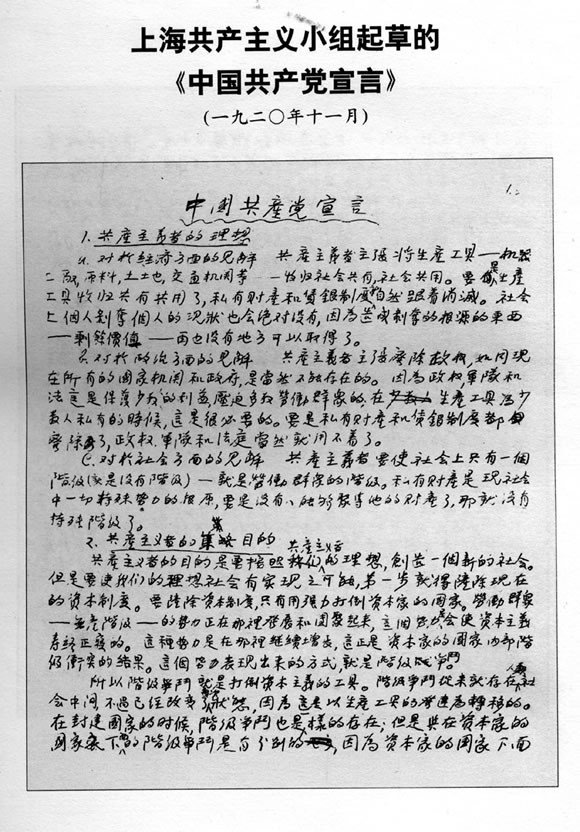 上海共产主义小组起草的
《中国共产党宣言》
(一九二〇年十一月)
1.
中國共產党宣言
1. 共產主義者的理想
a. 对於経济方面的見解 共產主義者主張将生産工具——机器
工厰,原料,土地,交通机関等——收归社会共有,社会共用。要是生產
工具收归共有共用了,私有财產和賃銀制度就自然跟着消滅。社会
上個人剥奪個人的现狀也会绝对没有,因為造成剥奪的根源的東西
——剩餘價值——再也没有地方可以取得了。
b. 对於政治方面的見解 共產主義者主張廢除政权,如同现
在所有的國家机関和政府,是當然不能存在的。因為政权軍隊和
法庭是保護少数人的利益,壓迫多数勞動群衆的,在生產工具为少
数人私有的時候,這是很必要的。要是私有财產和賃銀制度都
廢除了,政权、軍隊和法庭當然就用不着了。
C. 对於社会方面的見解 共產主義者要使社会上只有一個
階級(就是没有階級)——就是勞動群衆的階級。私有财產是现社会
中一切特殊势力的根源,要是没有人能够聚集他的财產了,那就没有
特殊階級了。
2. 共產主義者的目的
共產主義者的目的是要按照共產主義者的理想,創造一個新的社会。
但是要使我们的理想社会有实现之可能,第一步就得鏟除现在
的資本制度。要鏟除資本制度,只有用强力打倒資本家的國家。勞動群衆
——無產階級——的势力正在那裡發展和团聚起來,這個势力会使資本主義
寿終正寢的。這種势力是在那裡継續增長,這正是資本家的國家内部階
級衝突的結果。這個势力表现出来的方式,就是階級争鬥。
所以階級争鬥就是打倒資本主義的工具。階級争鬥從来就存在人類社
会中間,不過已经改变狀態,因為這是以生產工具的發達為轉移的。
在封建國家的時候,階級争鬥也是樣的存在;但是與在資本家的
國家裏下面的階級争鬥是有分别的,因為資本家的國家下面